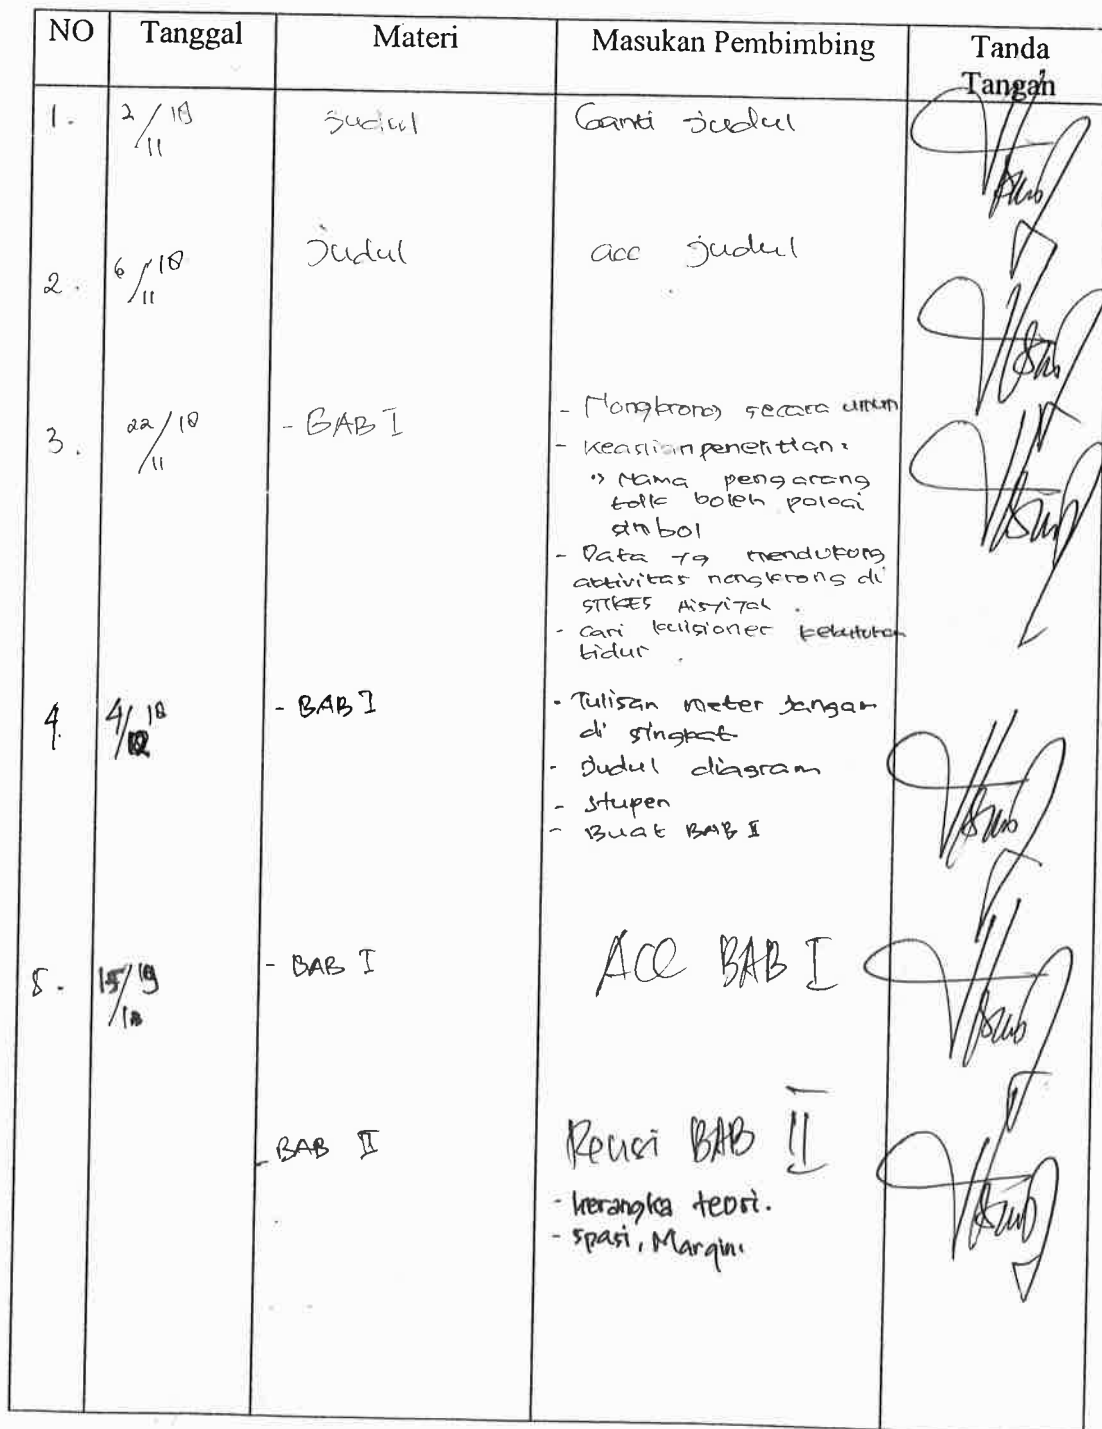 NO Tanggal Materi Masukan Pembimbing Tanda Tangan
1. 2/11 18 Judul Ganti judul
2. 6/11 18 Judul acc judul
3. 22/11 18 - BAB I - Nongkrong secara umum
- Keaslian penelitian:
Nama pengarang
tdk boleh pakai
simbol
- Data yg mendukung
aktivitas nongkrong di
STIKES Aisyiyah.
- Cari kuisioner kebutuhan
tidur.
4. 4/12 18 - BAB I - Tulisan meter jangan
di singkat
- Judul diagram
- Stupen
- Buat BAB II
5. - BAB I Acc BAB I
- BAB II Revisi BAB II
- kerangka teori.
- spasi, Margin.